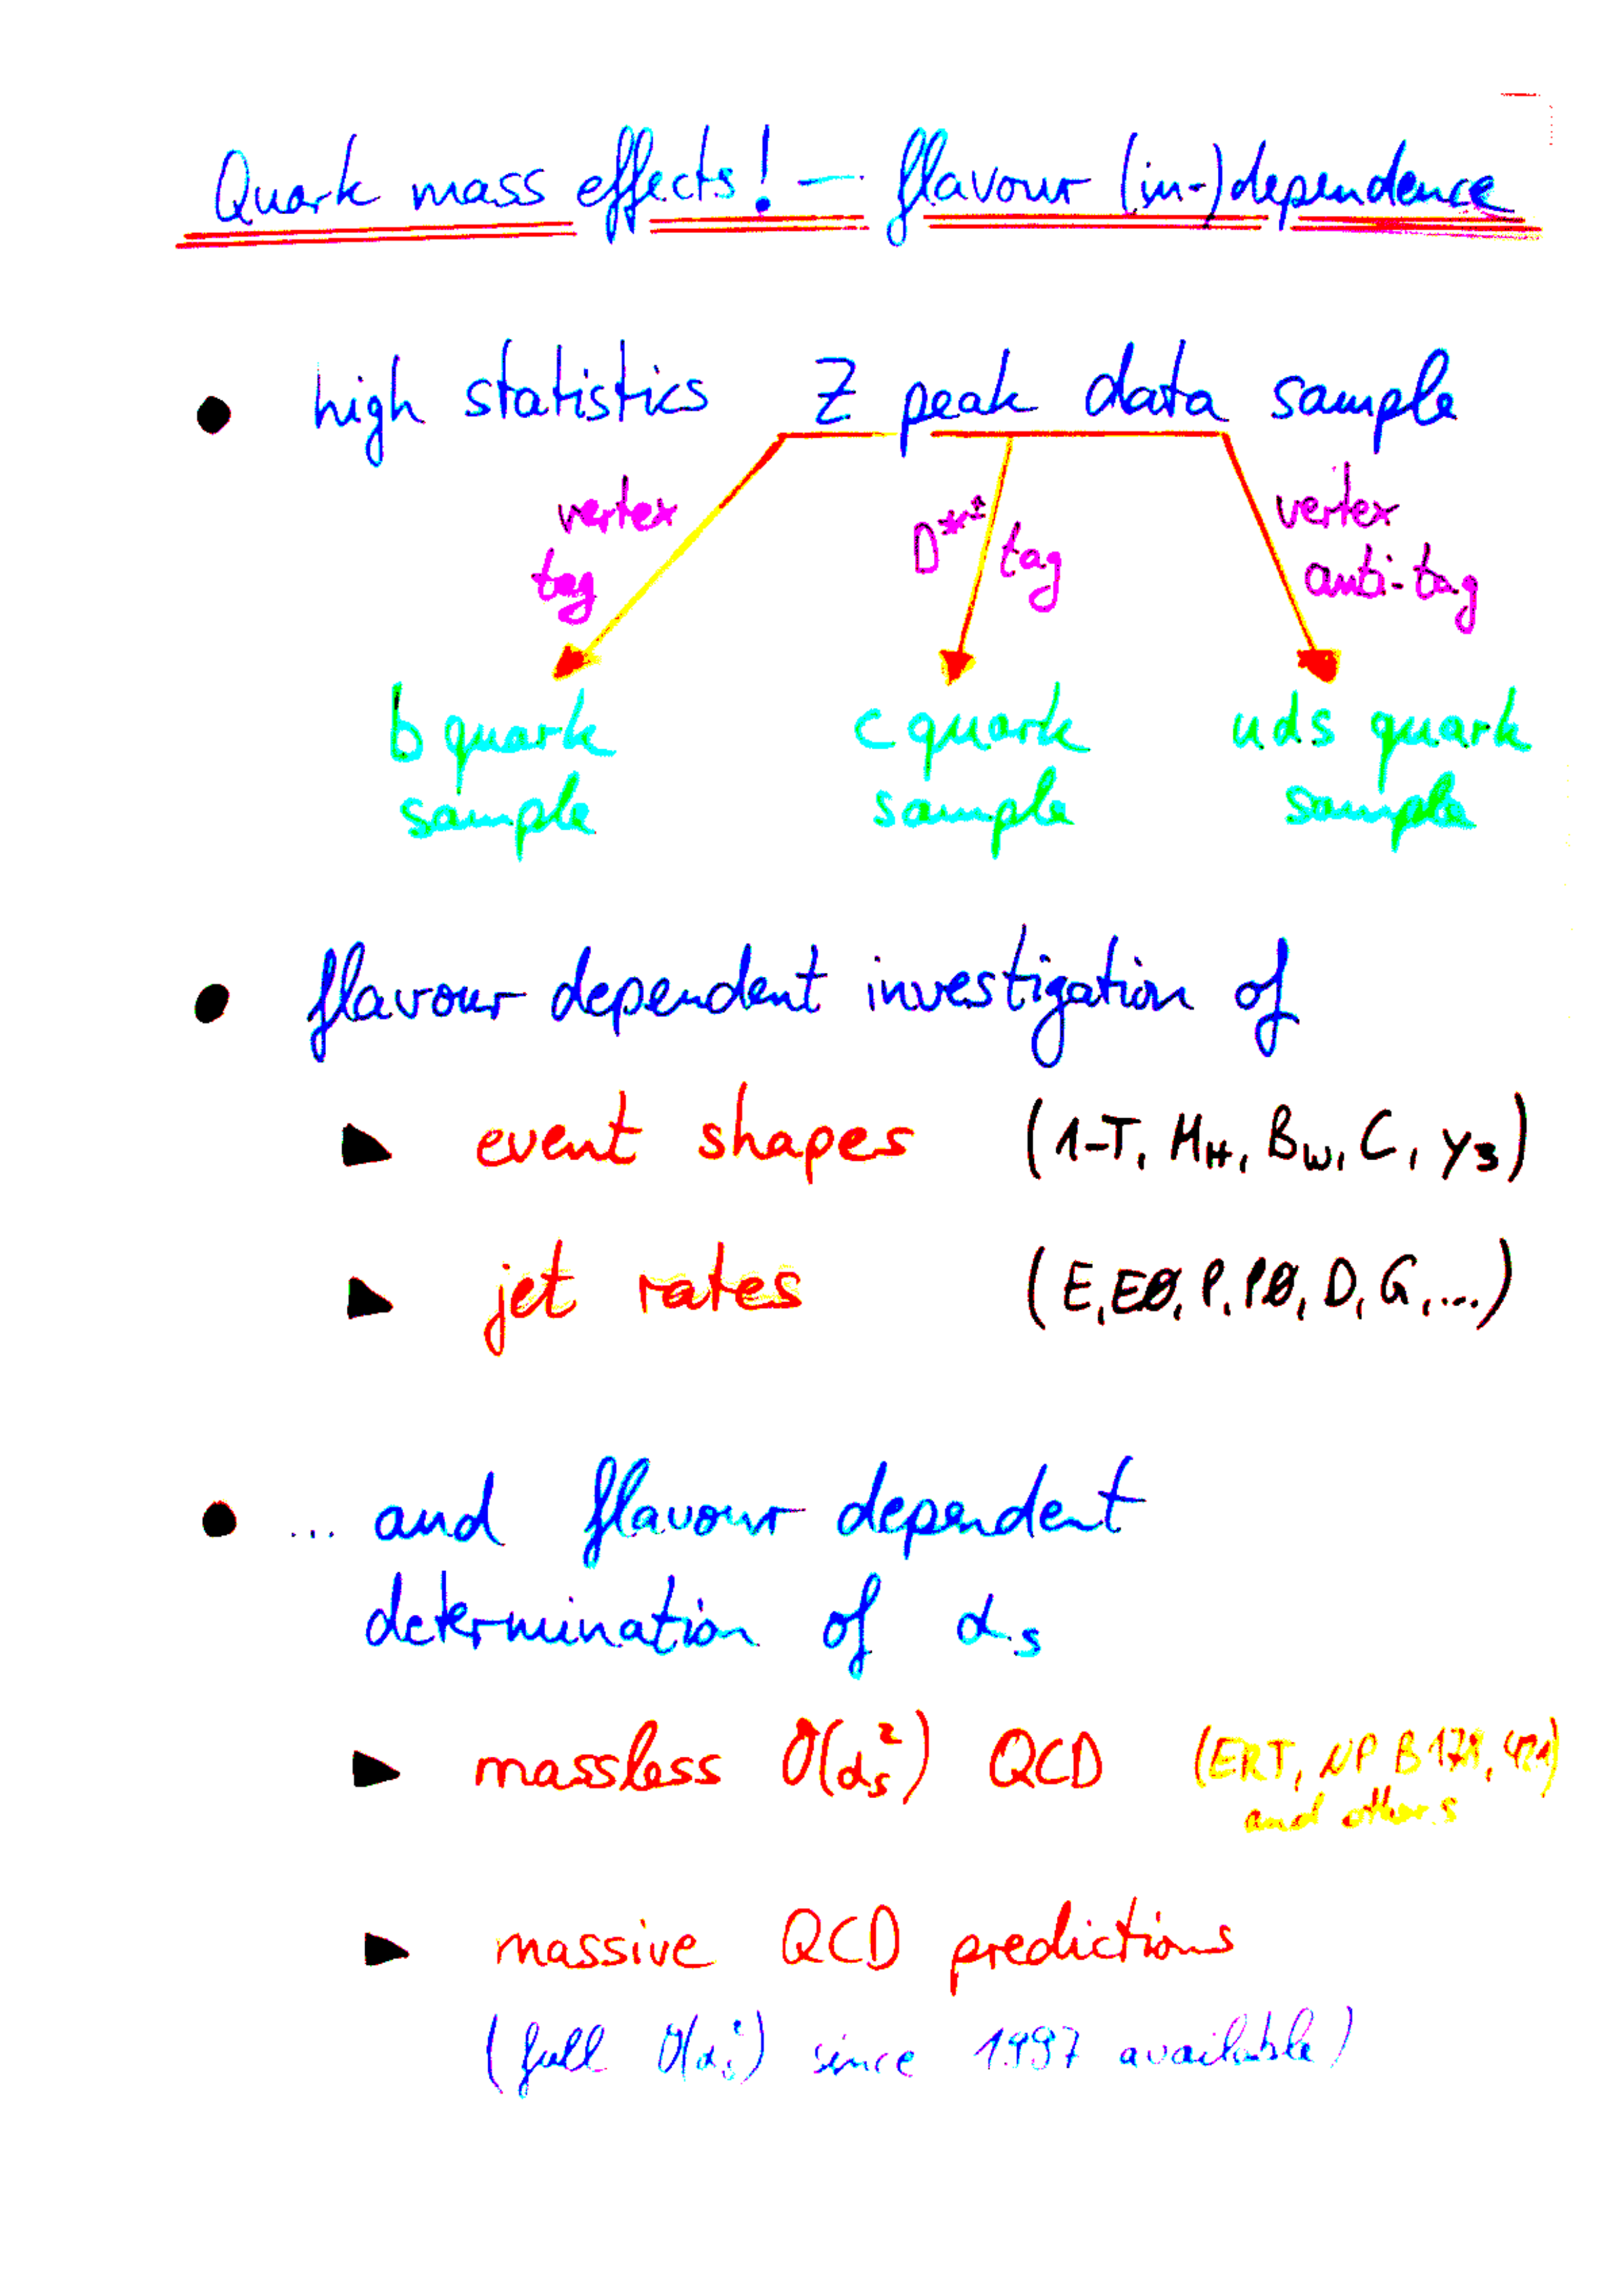 Quark mass effects! — flavour (in-)dependence
• high statistics Z peak data sample
vertex tag
D*± tag
vertex anti-tag
b quark sample
c quark sample
uds quark sample
• flavour dependent investigation of
► event shapes (1-T, M_H, B_W, C, y_3)
► jet rates (E, E0, P, P0, D, G, ...)
• ... and flavour dependent
determination of α_s
► massless O(α_s^2) QCD (ERT, NP B178, 421)
and others
► massive QCD predictions
(full O(α_s^2) since 1997 available)